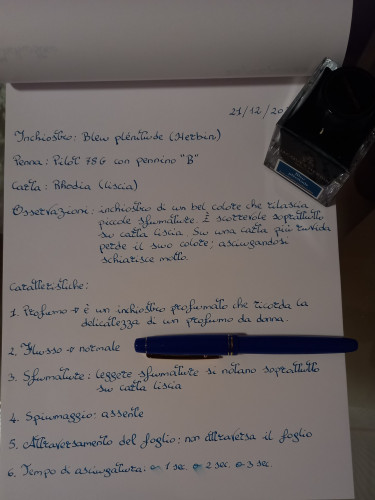 21/12/20
Inchiostro: Bleu plénitude (Herbin)
Penna: Pilot 78G con pennino "B"
Carta: Rhodia (liscia)
Osservazioni: inchiostro di un bel colore che rilascia
piccole sfumature. È scorrevole soprattutto
su carta liscia. Su una carta più ruvida
perde il suo colore; asciugandosi
schiarisce molto.
Caratteristiche:
1. Profumo → è un inchiostro profumato che ricorda la
delicatezza di un profumo da donna.
2. Flusso → normale
3. Sfumature: leggere sfumature si notano soprattutto
su carta liscia
4. Spiumaggio: assente
5. Attraversamento del foglio: non attraversa il foglio
6. Tempo di asciugatura: 1 sec. 2 sec. 3 sec.